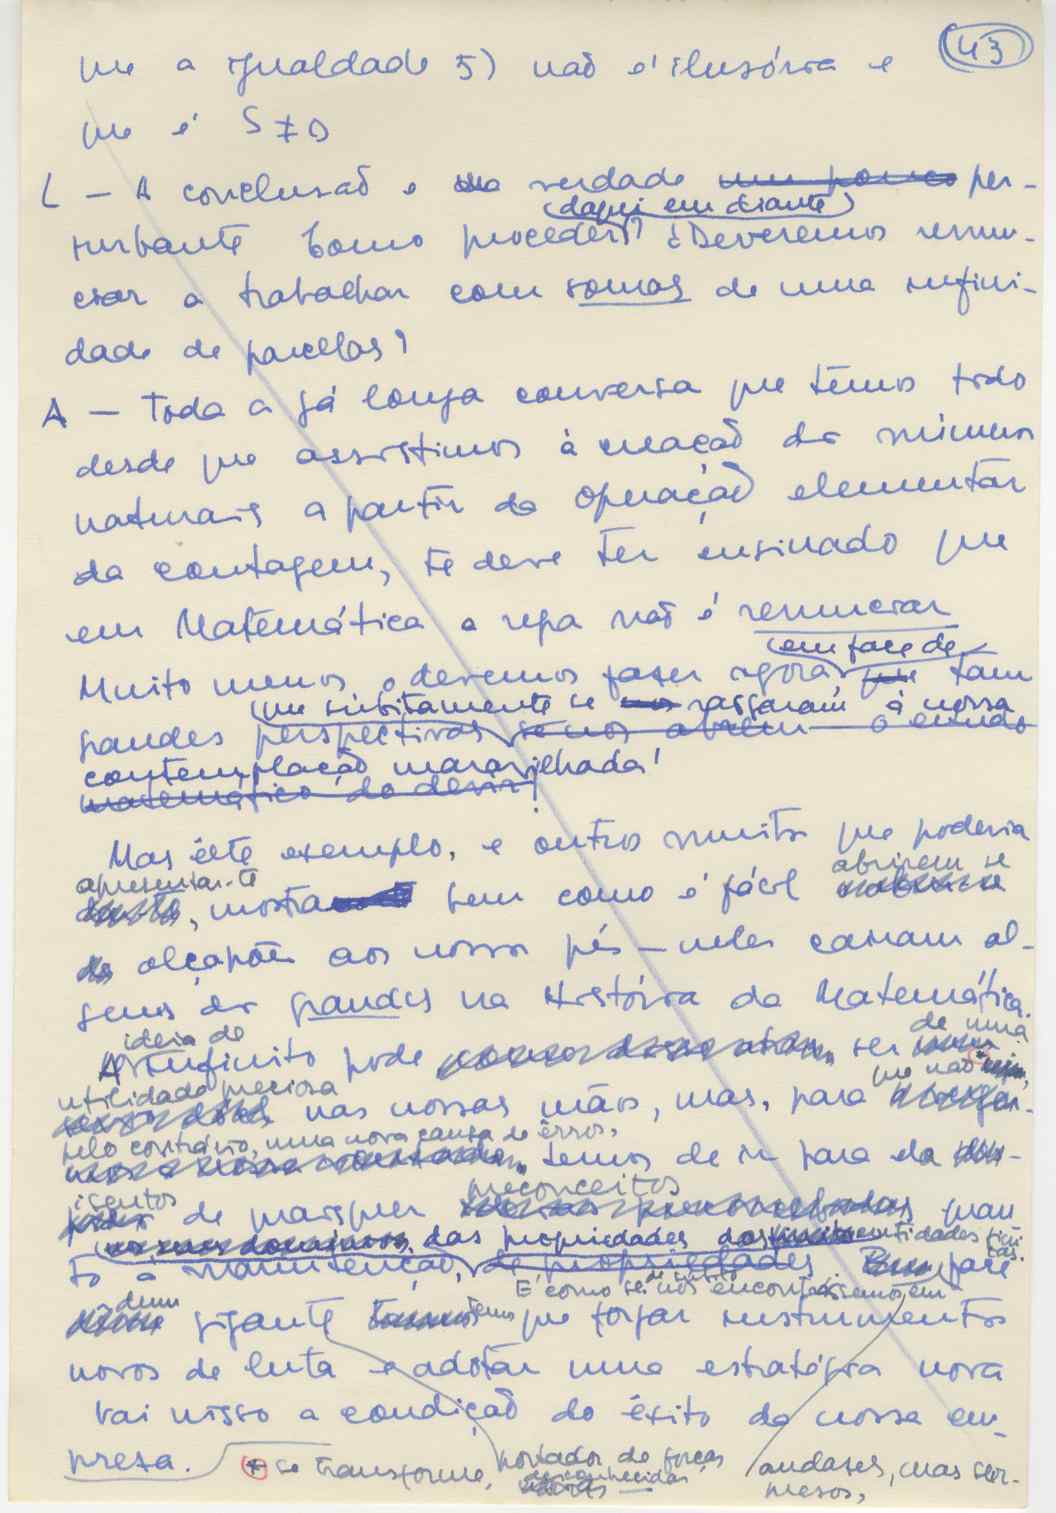 43
que a igualdade 5) não é ilusória e
que é S≠0
L — A conclusão é na verdade um pouco per-
(daqui em diante)
turbante Como proceder? Deveremos renun-
ciar a trabalhar com somas de uma infini-
dade de parcellas?
A — Toda a já longa conversa que têmos tido
desde que assistimos à creação dos números
naturais a partir da operação elementar
da contagem, te deve ter ensinado que
em Matemática a regra não é renunciar
em face de
Muito menos o devemos fazer agora que tam
que subitamente se rasgaram à nossa
grandes perspectivas se nos abrem o mundo
contemplação maravilhada!
matemático do devir!
Mas êste exemplo, e outros muitos que poderia
apresentar-te abrirem se
, mostra bem como é fácil
alçapões aos nossos pés — neles cairam al-
guns dos grandes na História da Matemática.
ideia de de uma
A infinito pode ser
utilidade preciosa que não
nas nossas mãos, mas, para
pelo contrário, uma nova causa de êrros,
temos de ir para ela
isentos preconceitos
de quaisquer quan
das propriedades das entidades fini
tas.
to à manutenção, de propriedades Bem face
E' como se de súbito nos encontrássemos em
dum
gigante temos que forjar instrumentos
novos de luta e adotar uma estratégia nova
Vai nisso a condição do êxito da nossa em-
presa.
* se transforme, portador de forças
desconhecidas
audazes, mas ser-
mesos,